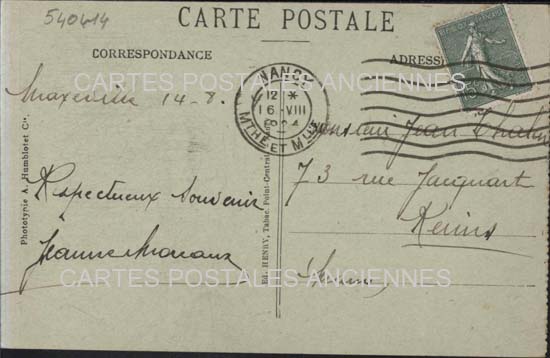 540614
CARTE POSTALE
CORRESPONDANCE
ADRESSE
CARTES POSTALES ANCIENNES
Maxeville 14-8.
NANCY
12 *
16 VIII
MTHE ET MLLE
Jean
73 rue Jacquart
Reims
Respectueux Souvenir
Jeanne
CARTES POSTALES ANCIENNES
Phototypie A. Humblotet Cie.
Ed. HENRY, Tabac Point-Central